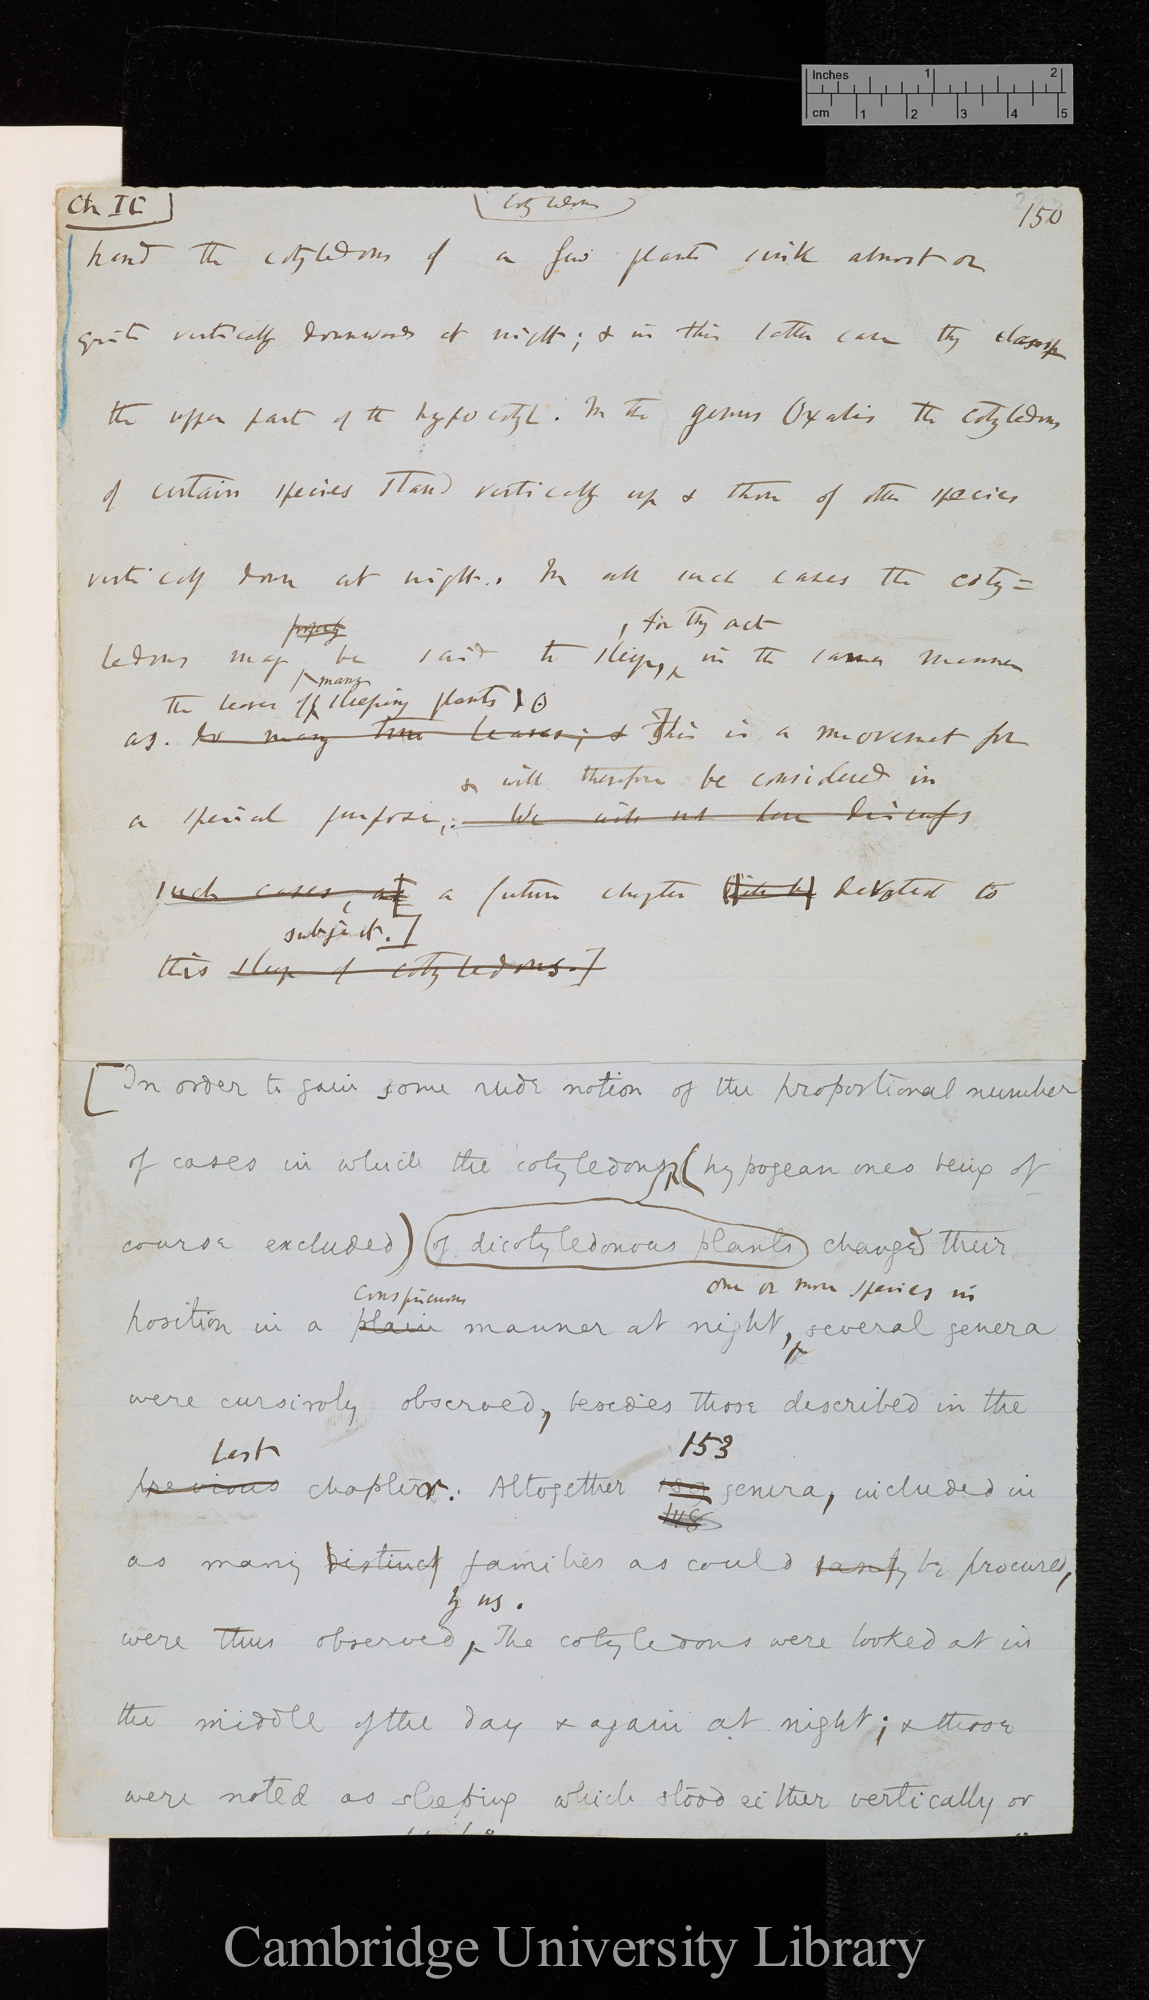 Inches 1 2
cm 1 2 3 4 5
Ch II
Cotyledons
150
hand the cotyledons of a few plants sink almost or
quite vertically downwards at night; & in this latter case they clasp
the upper part of the hypocotyl. In the genus Oxalis the cotyledons
of certain species stand vertically up & those of other species
vertically down at night. In all such cases the coty=
properly , for they act
ledons may be said to sleep, in the same manner
many
the leaves of sleeping plants
as do many true leaves; & This is a movement for
& will therefore be considered in
a special purpose; We will not here discuss
such cases, as a future chapter will be devoted to
subject.]
this sleep of cotyledons.]
[In order to gain some rude notion of the proportional number
of cases in which the cotyledons (hypogean ones being of
course excluded) of dicotyledonous plants changed their
conspicuous one or more species in
position in a plain manner at night, several genera
were cursively observed, besides those described in the
last 153
previous chapter. Altogether genera, included in
148
as many distinct families as could easily be procured,
by us.
were thus observed, The cotyledons were looked at in
the middle of the day & again at night; & those
were noted as sleeping which stood either vertically or
Cambridge University Library